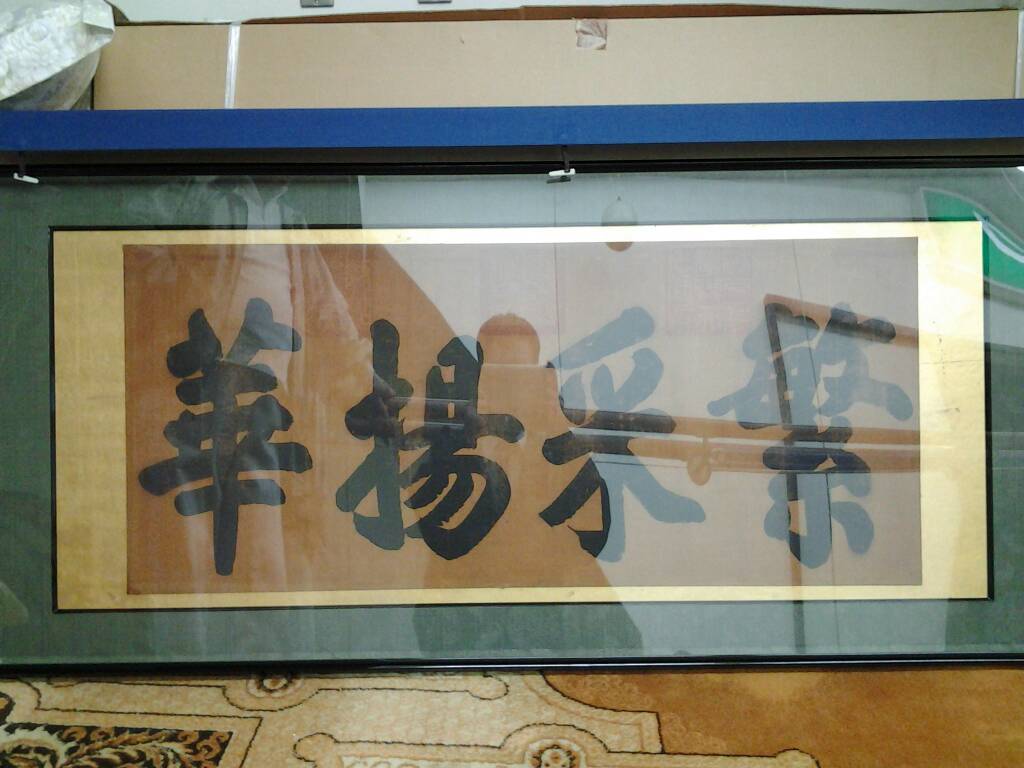 繁采揚華